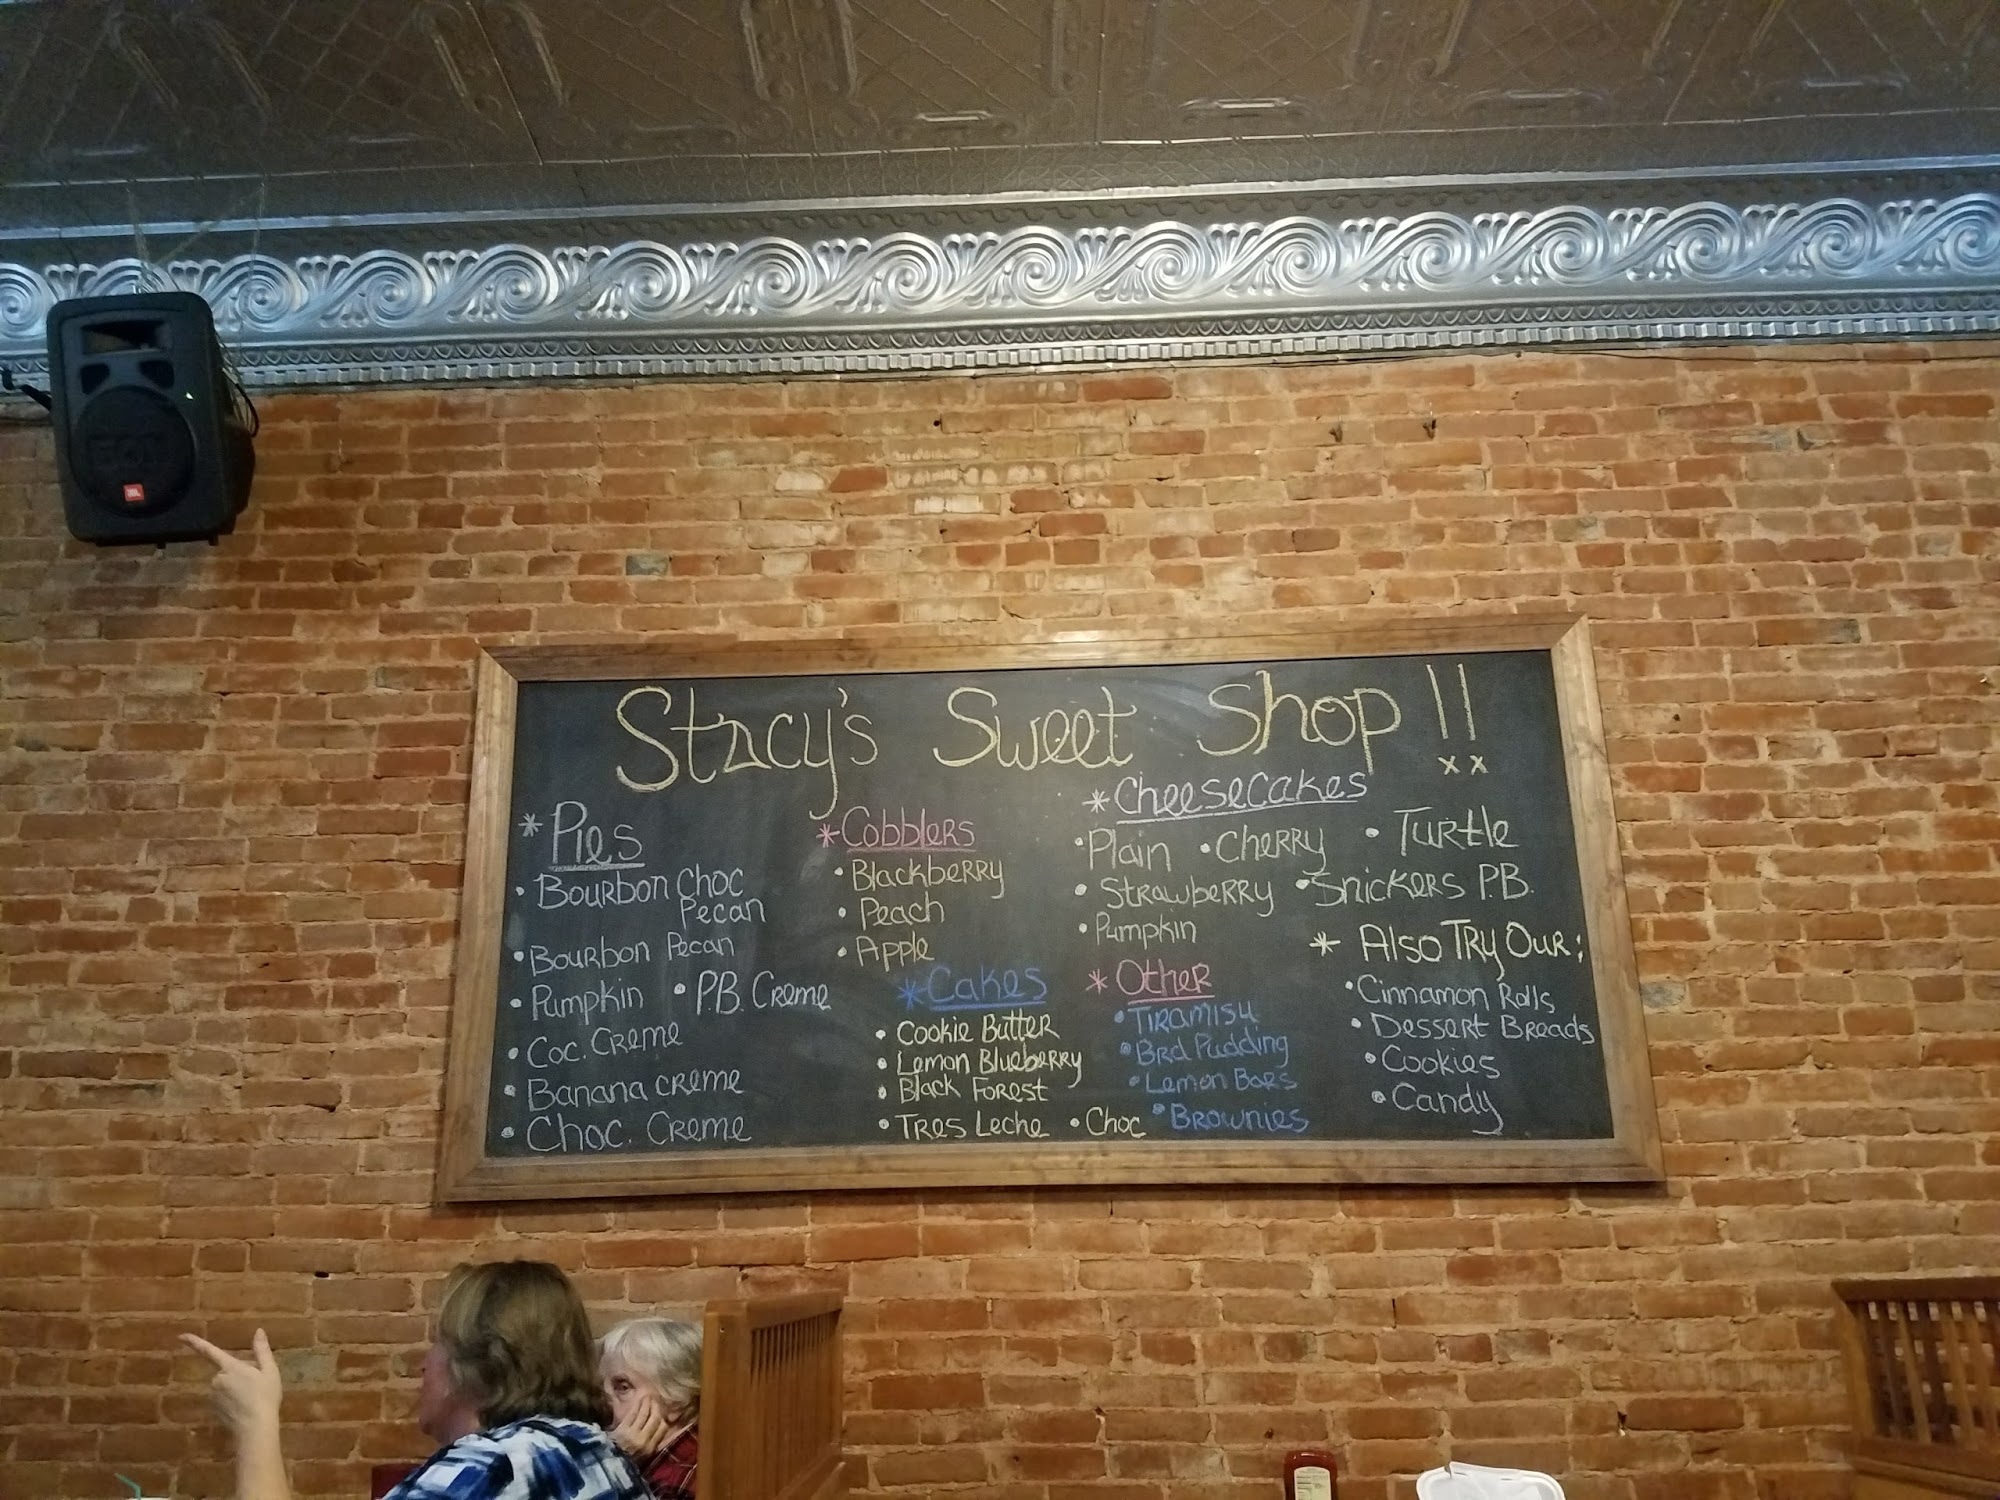 Stacy's Sweet Shop!!
* Pies
• Bourbon Choc
Pecan
• Bourbon Pecan
• Pumpkin • P.B. Creme
• Coc. Creme
• Banana creme
• Choc. Creme
* Cobblers
• Blackberry
• Peach
• Apple
* Cakes
• Cookie Butter
• Lemon Blueberry
• Black Forest
• Tres Leche • Choc
* Cheesecakes
• Plain • Cherry • Turtle
• Strawberry • Snickers P.B.
• Pumpkin
* Other
• Tiramisu
• Brd Pudding
• Lemon Bars
• Brownies
* Also Try Our:
• Cinnamon Rolls
• Dessert Breads
• Cookies
• Candy
JBL
EON